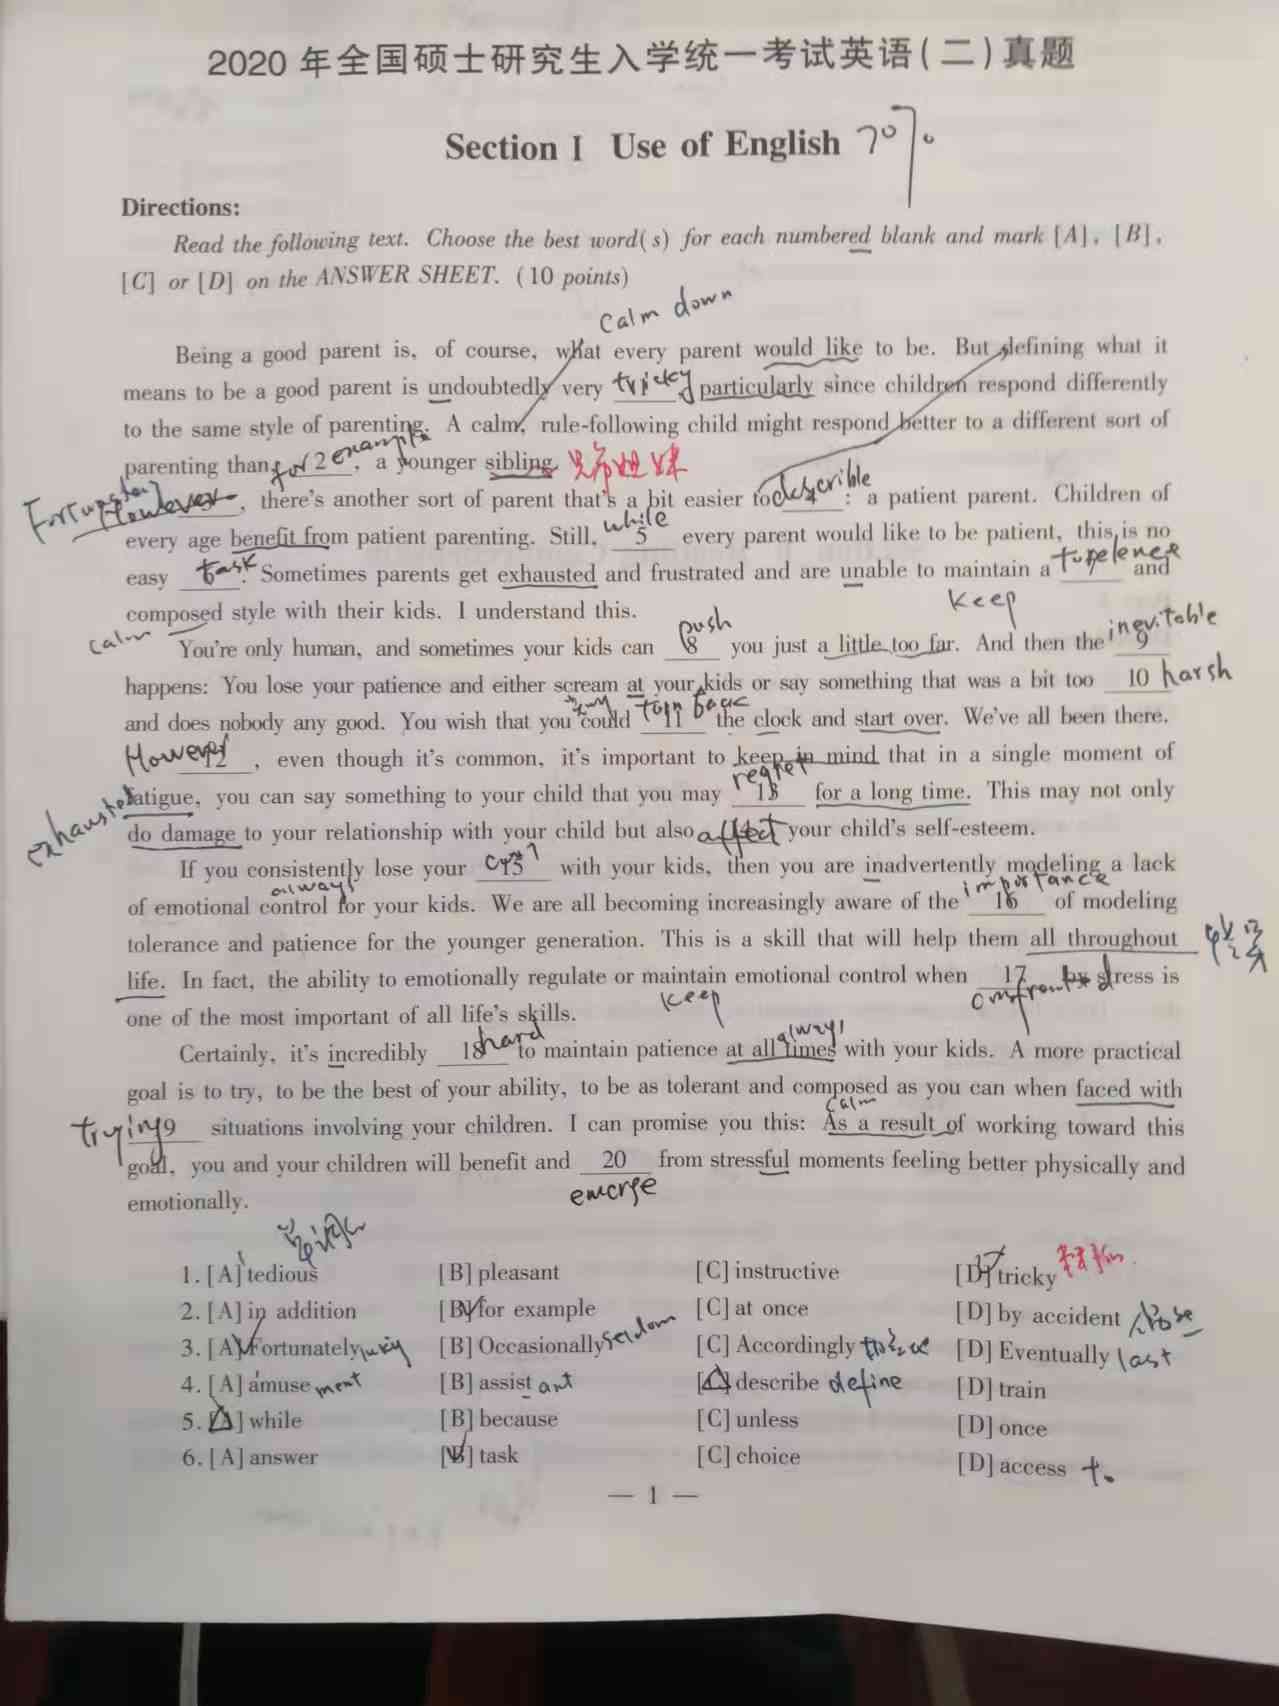 2020年全国硕士研究生入学统一考试英语(二)真题
Section I Use of English 70%
Directions:
Read the following text. Choose the best word(s) for each numbered blank and mark [A], [B],
[C] or [D] on the ANSWER SHEET. (10 points)
calm down
Being a good parent is, of course, what every parent would like to be. But defining what it
means to be a good parent is undoubtedly very tricky particularly since children respond differently
to the same style of parenting. A calm, rule-following child might respond better to a different sort of
parenting than for 2 example, a younger sibling. 兄弟姐妹
Fortunately However, there's another sort of parent that's a bit easier to describle 4: a patient parent. Children of
every age benefit from patient parenting. Still, while 5 every parent would like to be patient, this is no
easy task. Sometimes parents get exhausted and frustrated and are unable to maintain a 7 and
keep
composed style with their kids. I understand this.
calm
You're only human, and sometimes your kids can push 8 you just a little too far. And then the inevitable 9
happens: You lose your patience and either scream at your kids or say something that was a bit too 10 harsh
and does nobody any good. You wish that you could turn back 11 the clock and start over. We've all been there.
However 12, even though it's common, it's important to keep in mind that in a single moment of
exhausted fatigue, you can say something to your child that you may regret 13 for a long time. This may not only
do damage to your relationship with your child but also affect your child's self-esteem.
If you consistently lose your 15 with your kids, then you are inadvertently modeling a lack
always
of emotional control for your kids. We are all becoming increasingly aware of the importance 16 of modeling
tolerance and patience for the younger generation. This is a skill that will help them all throughout
life. In fact, the ability to emotionally regulate or maintain emotional control when 17 by stress is
keep
one of the most important of all life's skills.
Certainly, it's incredibly 18 hard to maintain patience at all times always with your kids. A more practical
goal is to try, to be the best of your ability, to be as tolerant and composed as you can when faced with
calm
trying 19 situations involving your children. I can promise you this: As a result of working toward this
goal, you and your children will benefit and 20 from stressful moments feeling better physically and
emerge
emotionally.
1. [A] tedious [B] pleasant [C] instructive [D] tricky
2. [A] in addition [B] for example [C] at once [D] by accident
3. [A] Fortunately lucky [B] Occasionally seldom [C] Accordingly [D] Eventually last
4. [A] amuse ment [B] assist ant [C] describe define [D] train
5. [A] while [B] because [C] unless [D] once
6. [A] answer [B] task [C] choice [D] access to
— 1 —